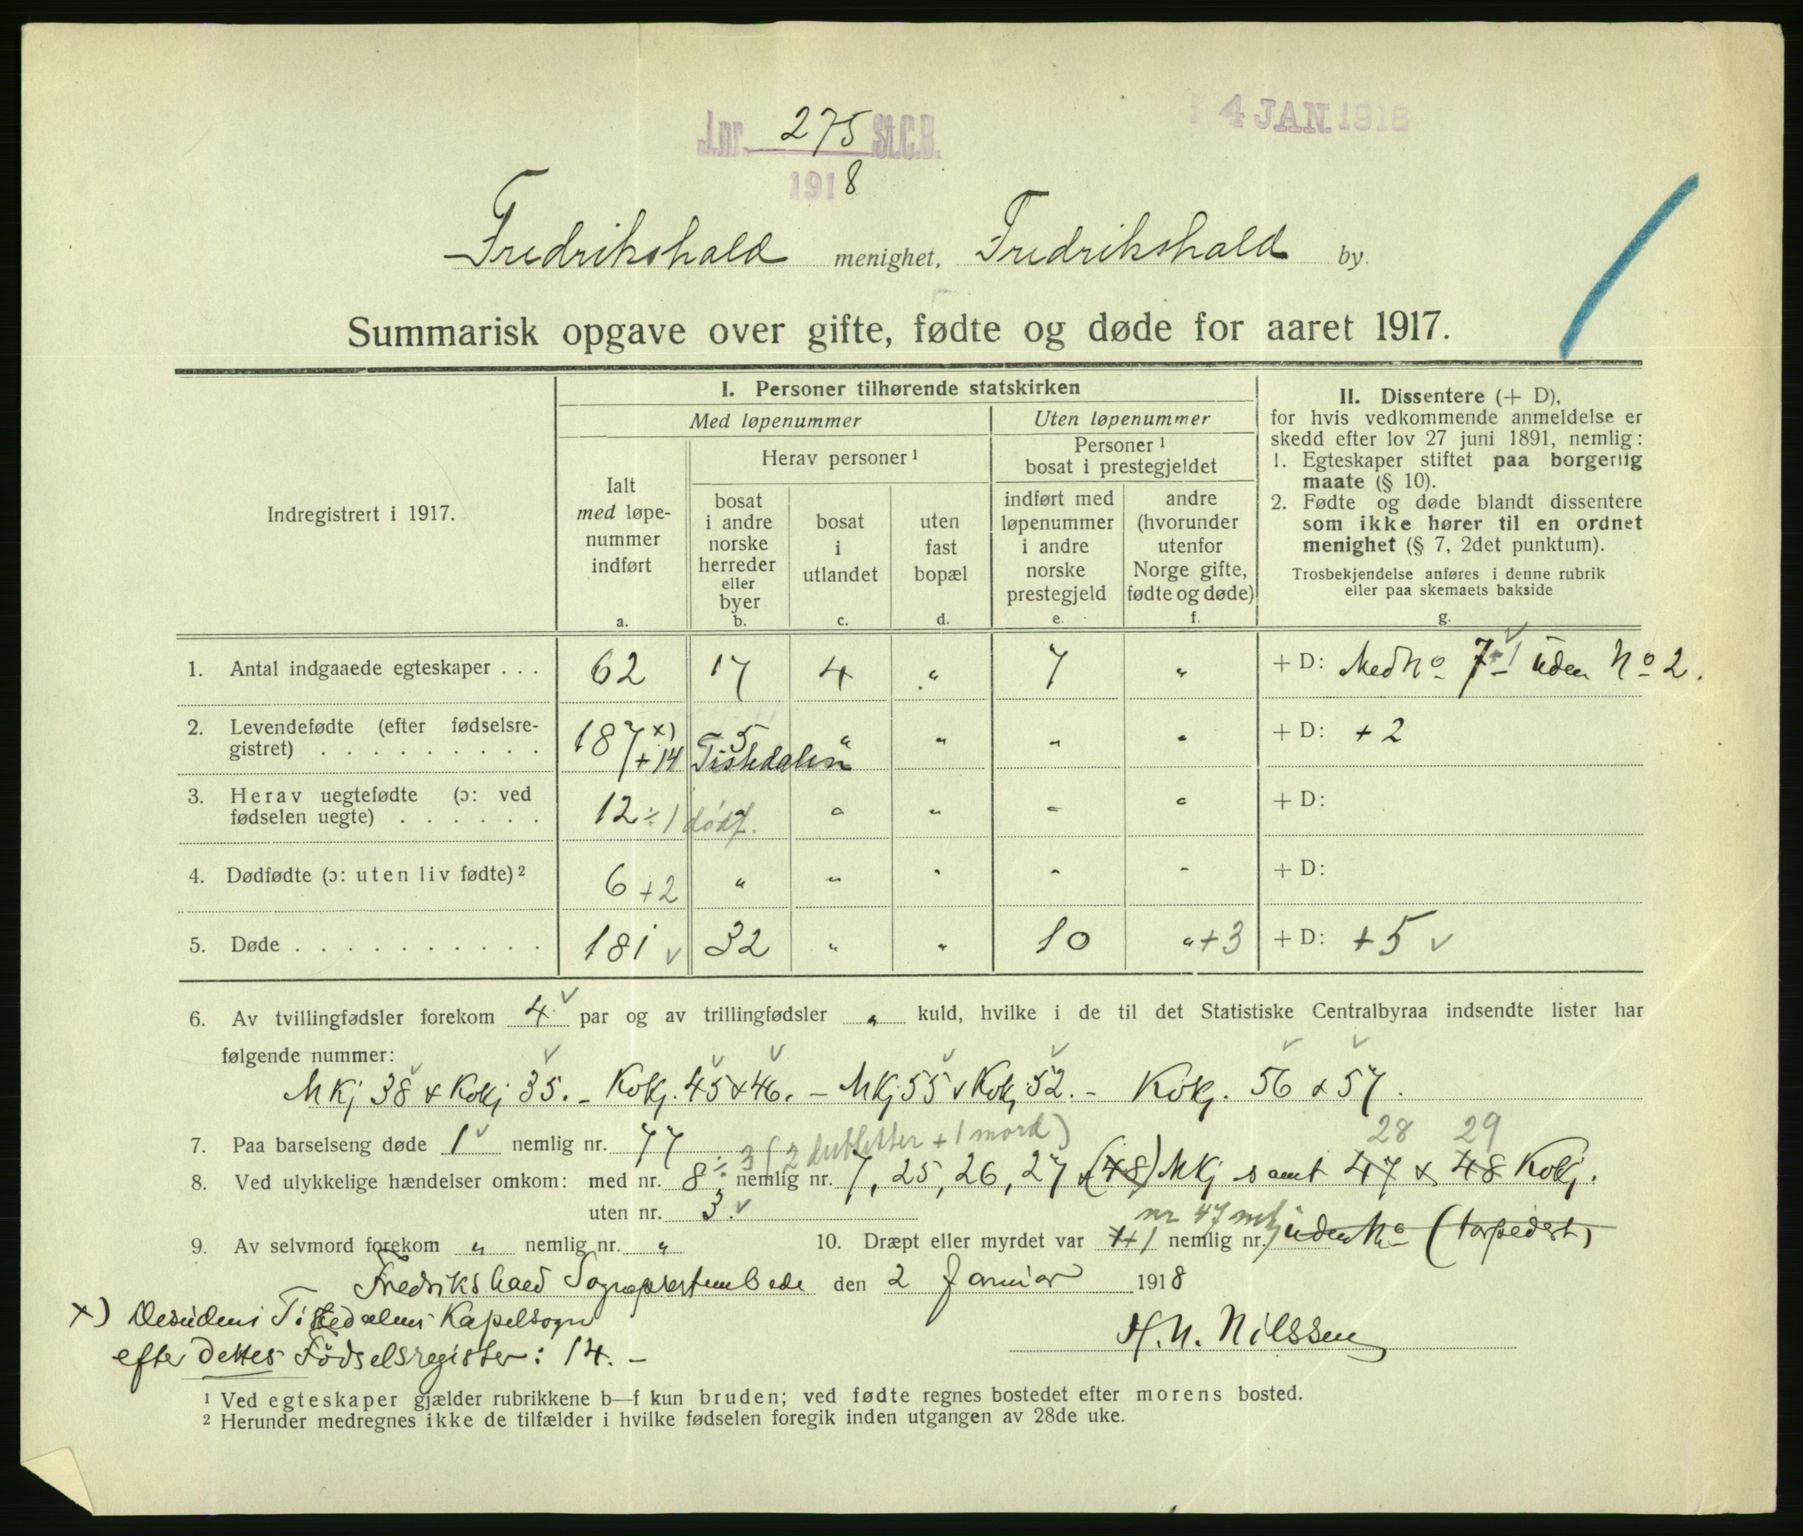 J.nr. 275 St.C.B.
4 JAN. 1918
1918
Fredrikshald menighet, Fredrikshald by.
Summarisk opgave over gifte, fødte og døde for aaret 1917.
Indregistrert i 1917.
I. Personer tilhørende statskirken
Med løpenummer
Uten løpenummer
Herav personer¹
Personer¹
bosat i prestegjeldet
Ialt
med løpe-
nummer
indført
a.
bosat
i andre
norske
herreder
eller
byer
b.
bosat
i
utlandet
c.
uten
fast
bopæl
d.
indført med
løpenummer
i andre
norske
prestegjeld
e.
andre
(hvorunder
utenfor
Norge gifte,
fødte og døde)
f.
II. Dissentere (+ D),
for hvis vedkommende anmeldelse er
skedd efter lov 27 juni 1891, nemlig:
1. Egteskaper stiftet paa borgerlig
maate (§ 10).
2. Fødte og døde blandt dissentere
som ikke hører til en ordnet
menighet (§ 7, 2det punktum).
Trosbekjendelse anføres i denne rubrik
eller paa skemaets bakside
g.
1. Antal indgaaede egteskaper . . . 62 17 4 " 7 " + D: Med No 7 +1 uden No 2.
2. Levendefødte (efter fødselsre-
gistret) . . . . . . . . . . 187 x) 5 " " " " + D: + 2
+ 14 Tistedalen
3. Herav uegtefødte (ɔ: ved
fødselen uegte) . . . . . . 12 ÷ 1 dødf. " " " " + D:
4. Dødfødte (ɔ: uten liv fødte)² 6 +2 " " " " " + D:
5. Døde . . . . . . . . . . 181 v 32 " " 10 " +3 + D: +5 v
6. Av tvillingfødsler forekom 4 v par og av trillingfødsler " kuld, hvilke i de til det Statistiske Centralbyraa indsendte lister har
følgende nummer:
MKj 38 & Kvkj 35. – Kvkj. 45 & 46. – MKj 55 & Kvkj 52. – Kvkj. 56 & 57.
28 29
7. Paa barselseng døde 1 v nemlig nr. 77
÷ 3 (2 dubletter + 1 mord)
8. Ved ulykkelige hændelser omkom: med nr. 8 nemlig nr. 7, 25, 26, 27 & (48) MKj samt 47 & 48 Kvkj.
uten nr. 3. v
nr 47 mkj
9. Av selvmord forekom " nemlig nr. " 10. Dræpt eller myrdet var 1 nemlig nr. uden No (torpedert)
Fredrikshald Sogneprestembede den 2 Januar 1918
H. N. Nilssen
x) Desuden i Tistedalens Kapelsogn
efter dettes Fødselsregister: 14. –
¹ Ved egteskaper gjælder rubrikkene b—f kun bruden; ved fødte regnes bostedet efter morens bosted.
² Herunder medregnes ikke de tilfælder i hvilke fødselen foregik inden utgangen av 28de uke.